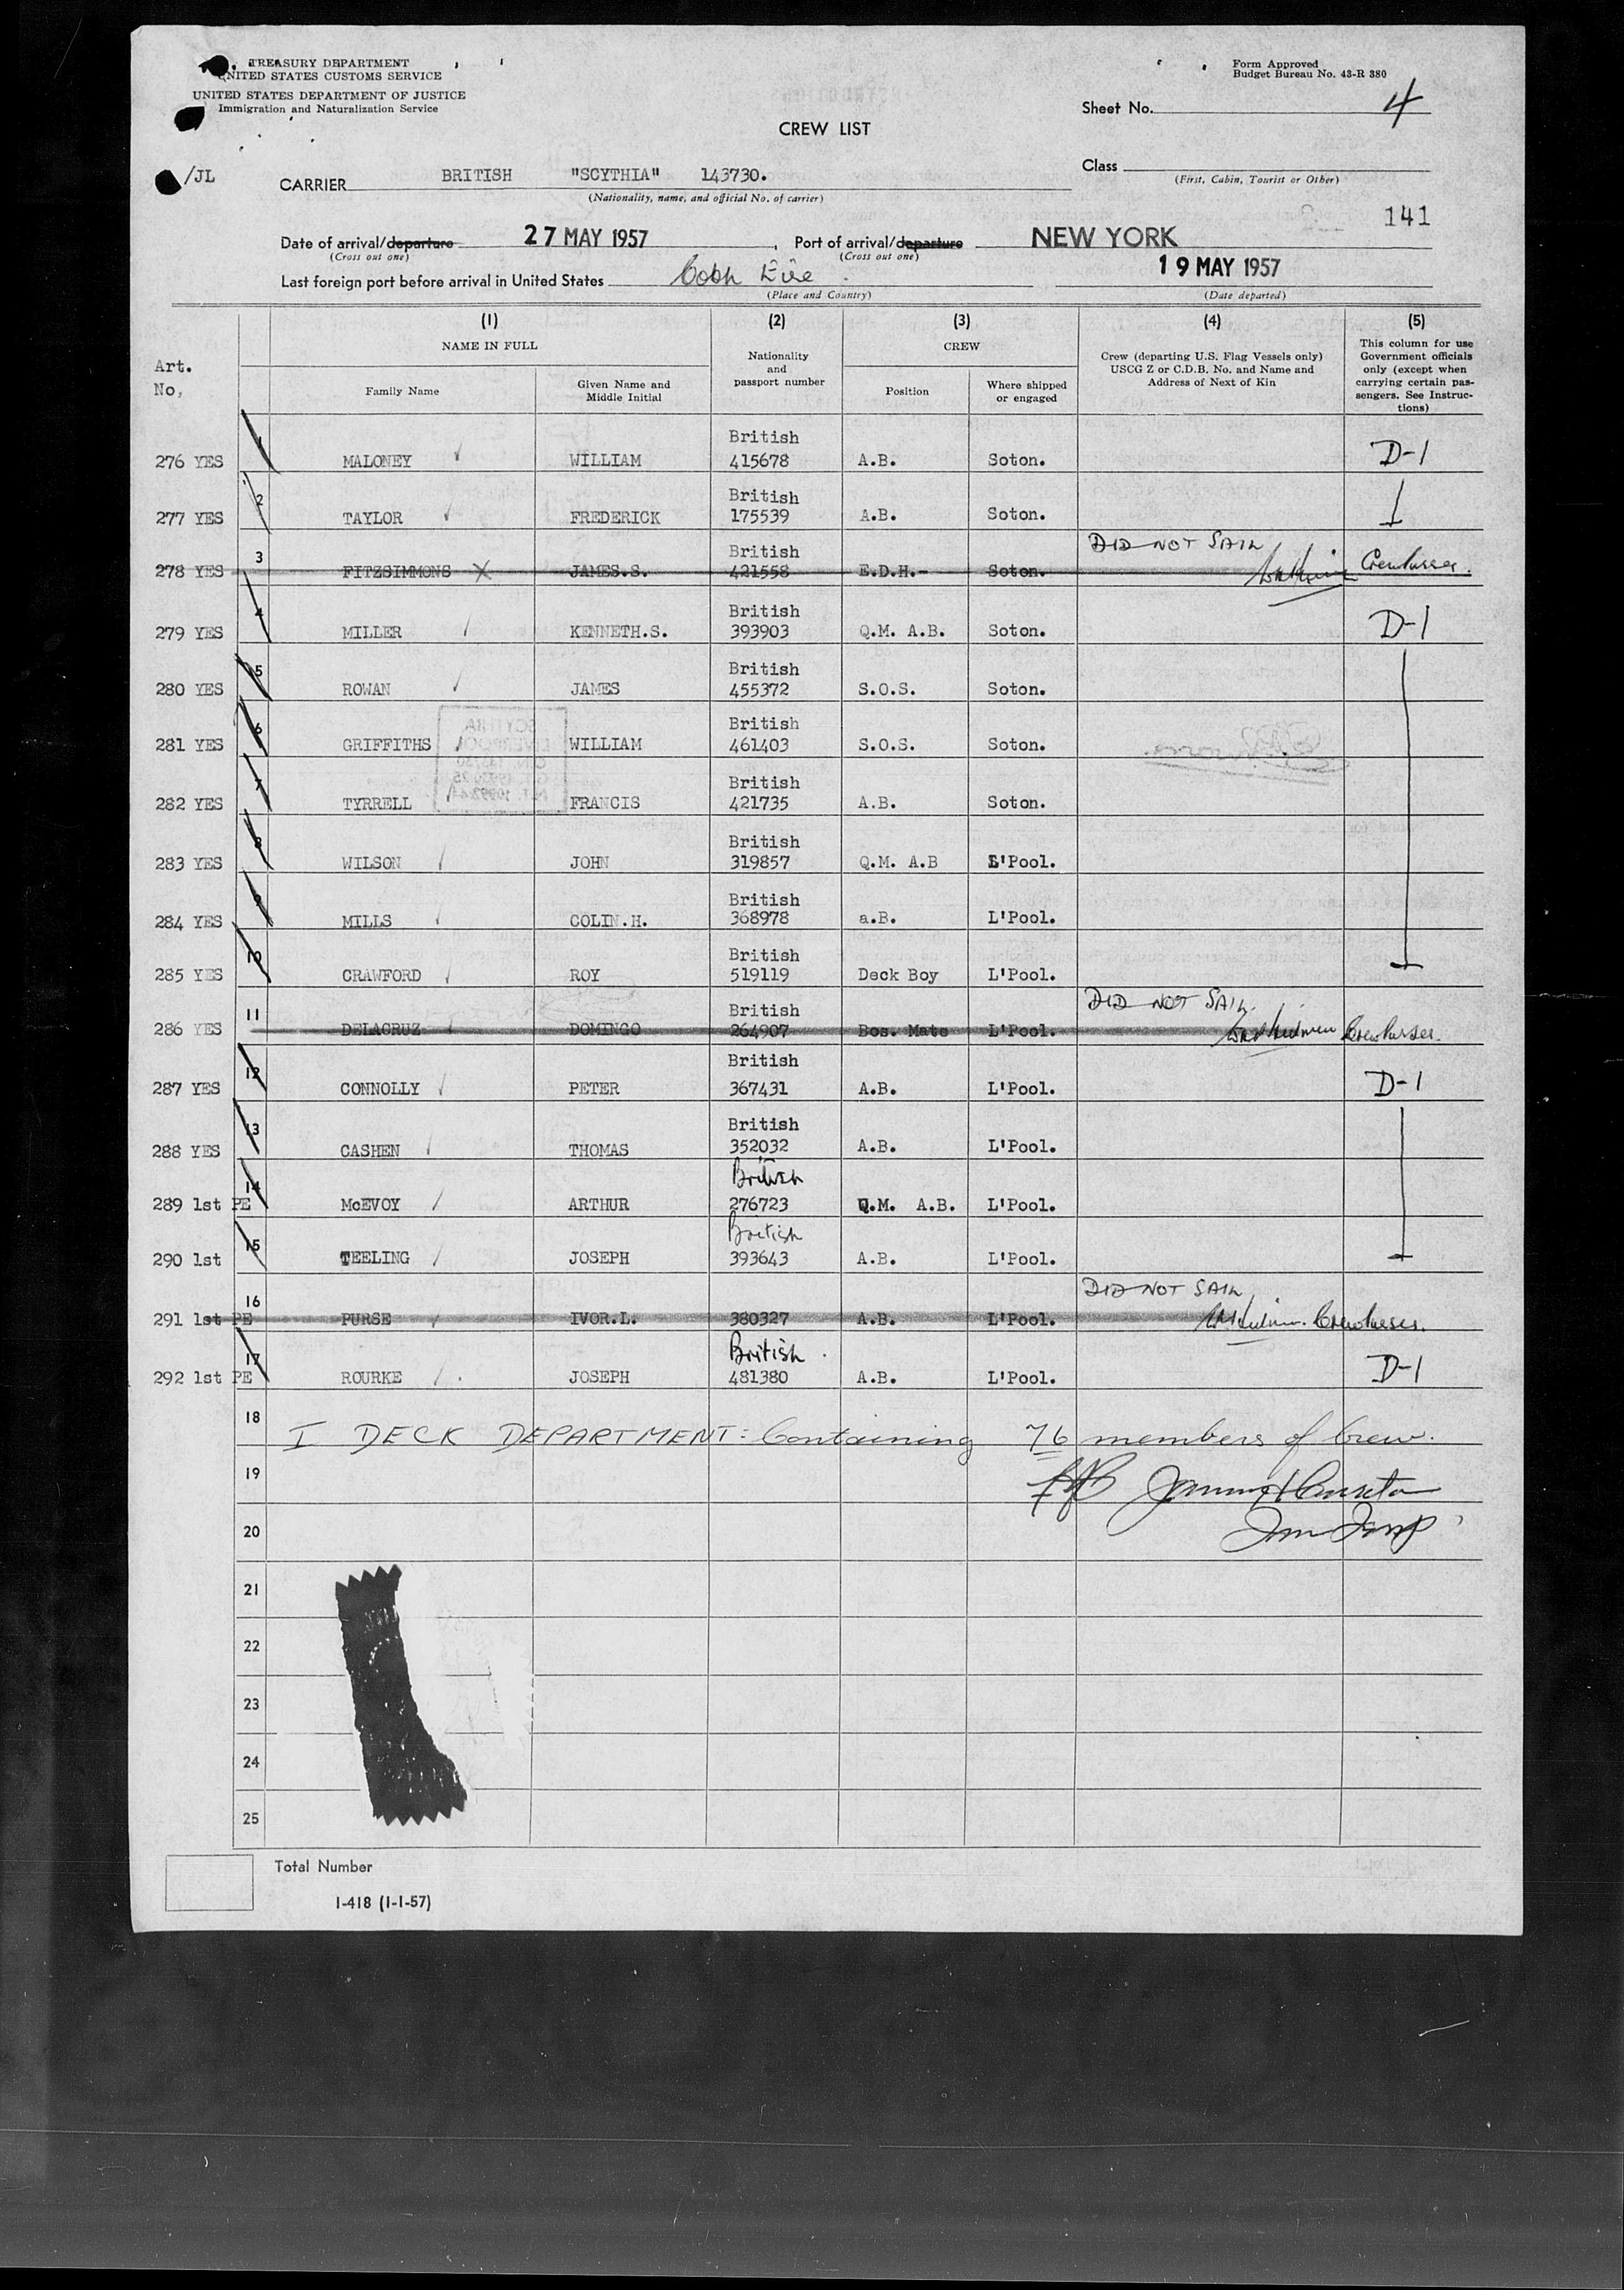 TREASURY DEPARTMENT
UNITED STATES CUSTOMS SERVICE
UNITED STATES DEPARTMENT OF JUSTICE
Immigration and Naturalization Service
Form Approved
Budget Bureau No. 43-R 380
Sheet No. 4
CREW LIST
/JL
CARRIER BRITISH "SCYTHIA" 143730.
(Nationality, name, and official No. of carrier)
Class
(First, Cabin, Tourist or Other)
141
Date of arrival/departure 27 MAY 1957, Port of arrival/departure NEW YORK
(Cross out one) (Cross out one)
Last foreign port before arrival in United States Cobh Eire. 19 MAY 1957
(Place and Country) (Date departed)
(1) (2) (3) (4) (5)
NAME IN FULL
Nationality and passport number
CREW
Crew (departing U.S. Flag Vessels only) USCG Z or C.D.B. No. and Name and Address of Next of Kin
This column for use Government officials only (except when carrying certain passengers. See Instructions)
Art. No,
Family Name
Given Name and Middle Initial
Position
Where shipped or engaged
276 YES 1 MALONEY WILLIAM British 415678 A.B. Soton. D-1
277 YES 2 TAYLOR FREDERICK British 175539 A.B. Soton.
278 YES 3 FITZSIMMONS X JAMES.S. British 421558 E.D.H.- Soton. DID NOT SAIL Crew Purser.
279 YES 4 MILLER KENNETH.S. British 393903 Q.M. A.B. Soton. D-1
280 YES 5 ROWAN JAMES British 455372 S.O.S. Soton.
281 YES 6 GRIFFITHS WILLIAM British 461403 S.O.S. Soton.
282 YES 7 TYRRELL FRANCIS British 421735 A.B. Soton.
283 YES 8 WILSON JOHN British 319857 Q.M. A.B L'Pool.
284 YES 9 MILLS COLIN.H. British 368978 a.B. L'Pool.
285 YES 10 CRAWFORD ROY British 519119 Deck Boy L'Pool.
286 YES 11 DELACRUZ DOMINGO British 264907 Bos. Mate L'Pool. DID NOT SAIL. Crew Purser.
287 YES 12 CONNOLLY PETER British 367431 A.B. L'Pool. D-1
288 YES 13 CASHEN THOMAS British 352032 A.B. L'Pool.
289 1st PE 14 McEVOY ARTHUR British 276723 Q.M. A.B. L'Pool.
290 1st 15 TEELING JOSEPH British 393643 A.B. L'Pool.
291 1st PE 16 PURSE IVOR.L. 380327 A.B. L'Pool. DID NOT SAIL Crew Purser.
292 1st PE 17 ROURKE JOSEPH British 481380 A.B. L'Pool. D-1
18 I DECK DEPARTMENT: Containing 76 members of Crew.
19
20
21
22
23
24
25
Total Number
I-418 (1-1-57)